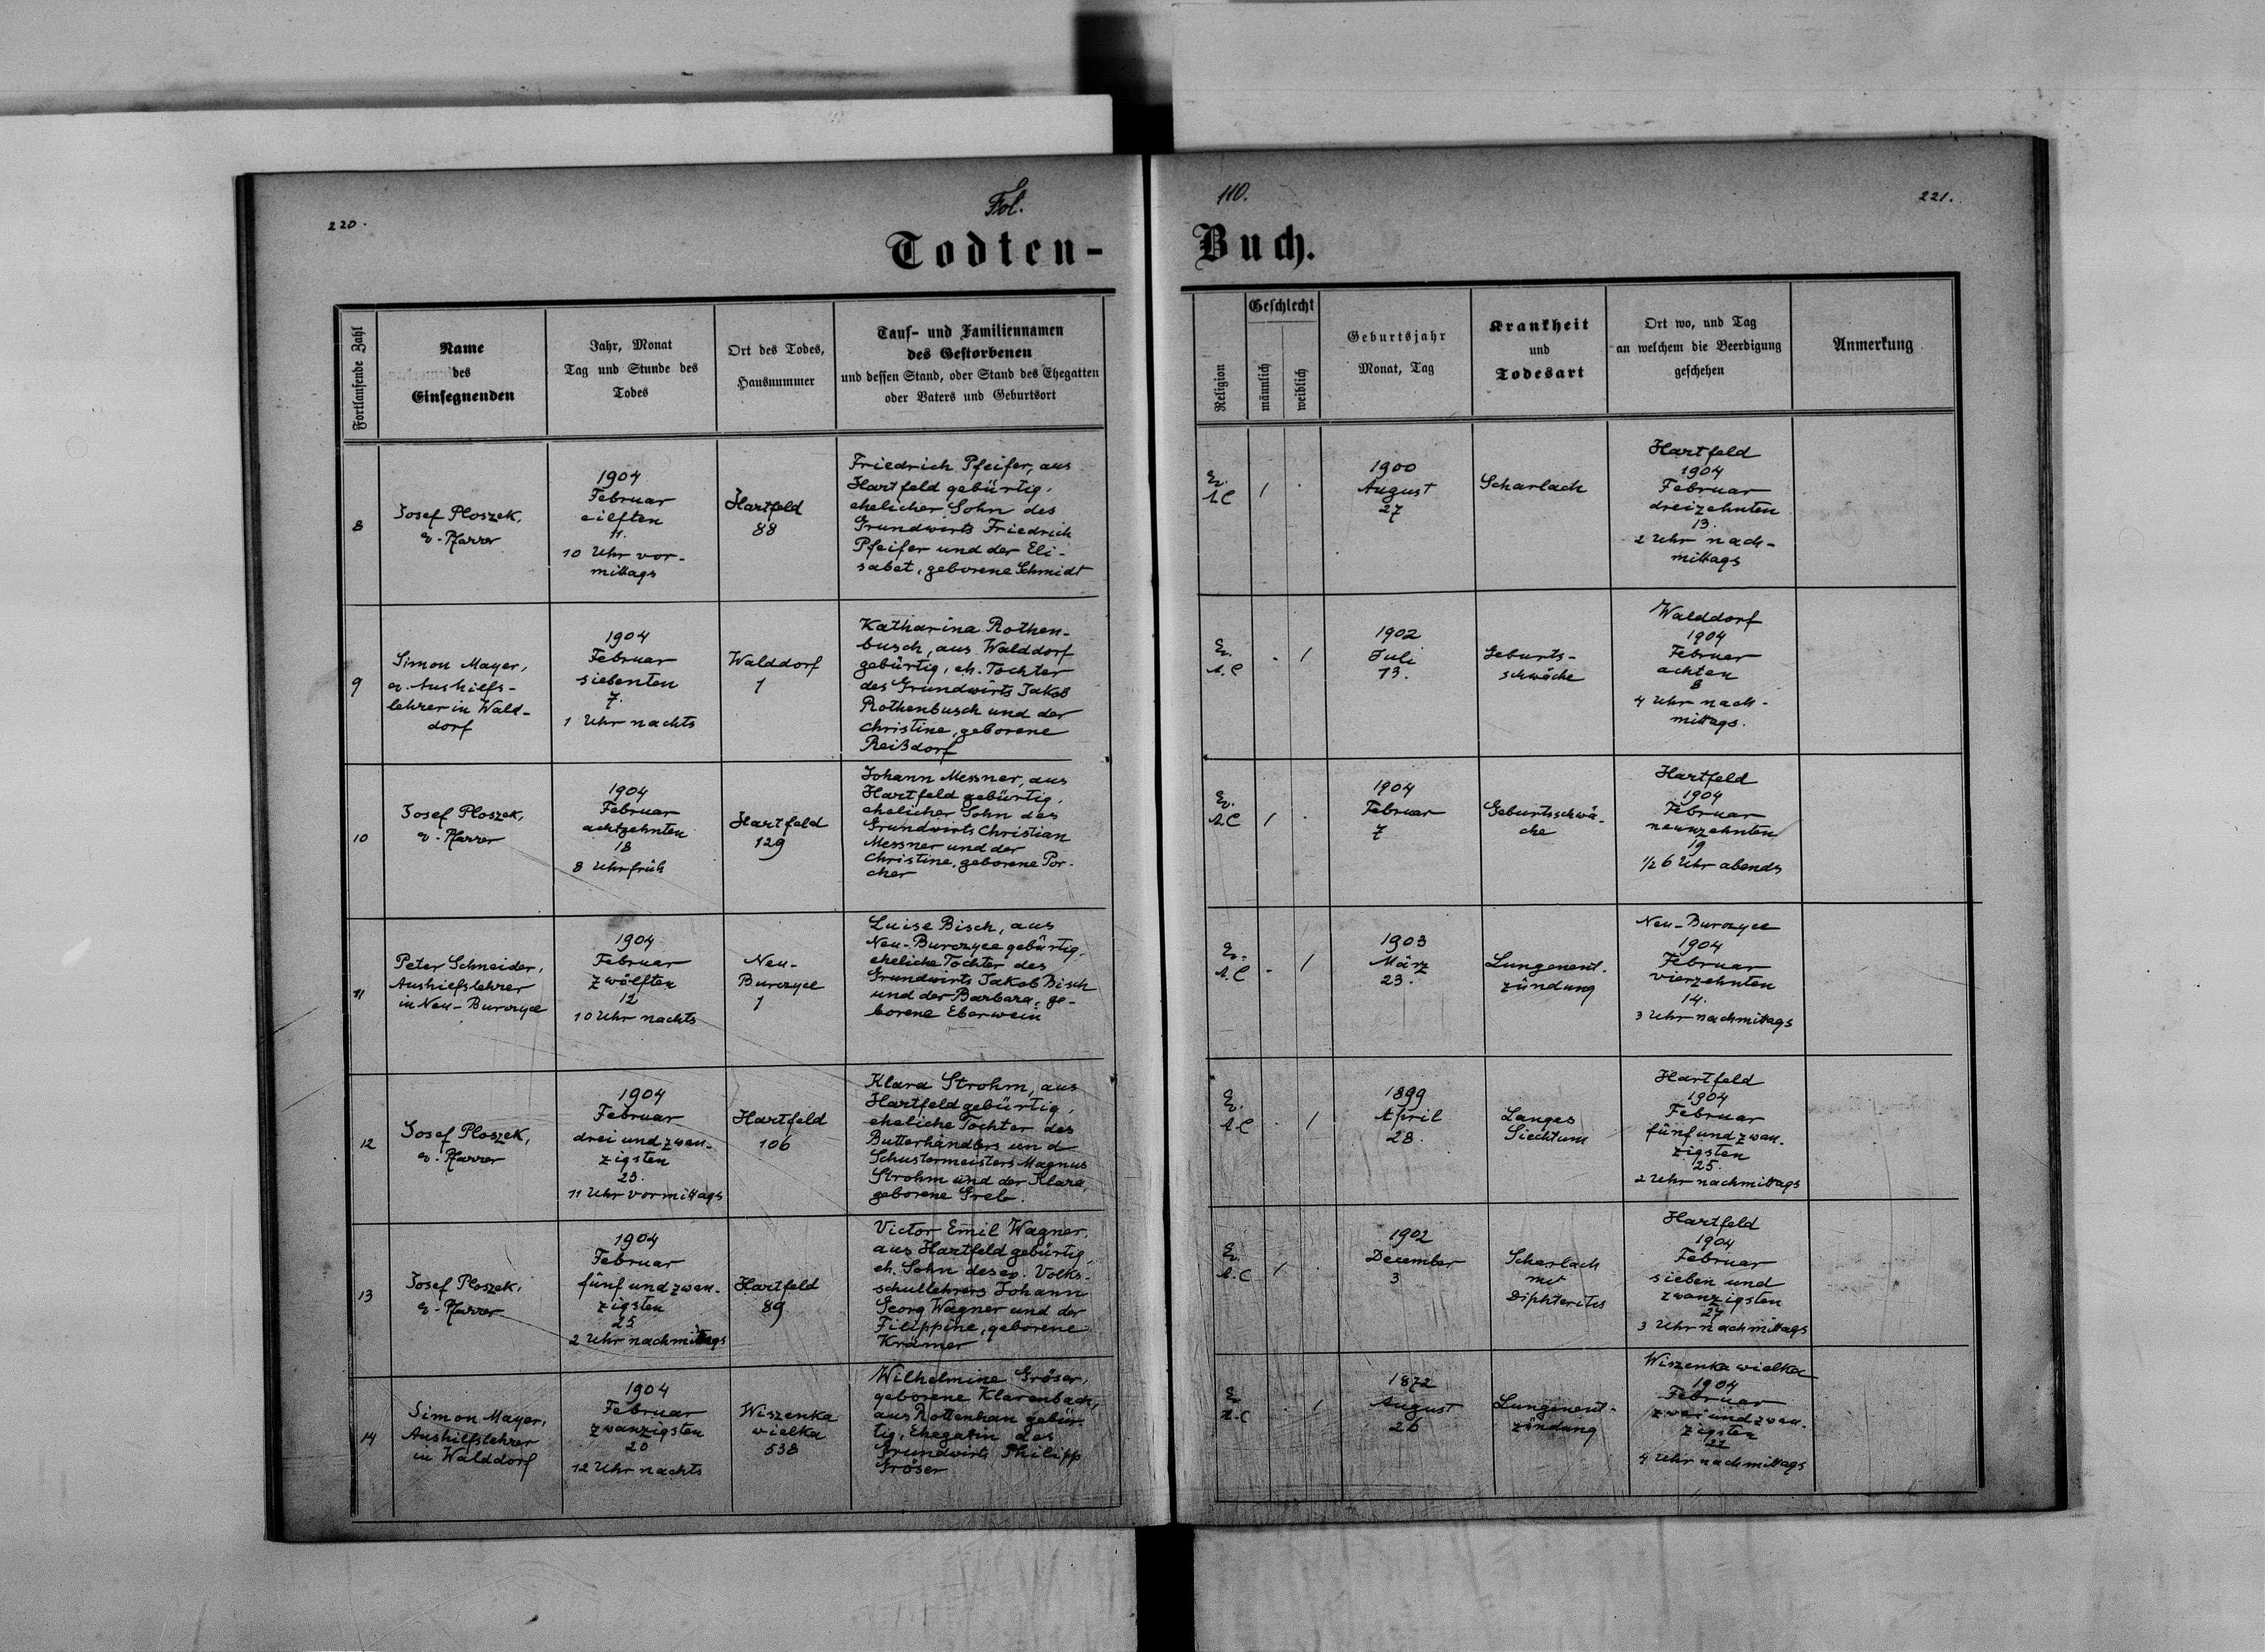 220.
Fol.
110.
221.
Todten-
Buch.
Fortlaufende Zahl
Name
des
Einsegnenden
Jahr, Monat
Tag und Stunde des
Todes
Ort des Todes,
Hausnummer
Tauf- und Familiennamen
des Gestorbenen
und dessen Stand, oder Stand des Ehegatten
oder Vaters und Geburtsort
Religion
Geschlecht
männlich
weiblich
Geburtsjahr
Monat, Tag
Krankheit
und
Todesart
Ort wo, und Tag
an welchem die Beerdigung
geschehen
Anmerkung
8
Josef Ploszek,
ev. Pfarrer
1904
Februar
eilften
11.
10 Uhr vor-
mittags
Hartfeld
88
Friedrich Pfeifer, aus
Hartfeld gebürtig,
ehelicher Sohn des
Grundwirts Friedrich
Pfeifer und der Eli-
sabet, geborene Schmidt
Ev.
A.C
1
.
1900
August
27
Scharlach
Hartfeld
1904
Februar
dreizehnten
13.
2 Uhr nach-
mittags
9
Simon Mayer,
ev. Aushilfs-
lehrer in Wald-
dorf
1904
Februar
siebenten
7.
1 Uhr nachts
Walddorf
1
Katharina Rothen-
busch, aus Walddorf
gebürtig, eh. Tochter
des Grundwirts Jakob
Rothenbusch und der
Christine, geborene
Reißdorf
Ev.
A.C
.
1
1902
Juli
13.
Geburts-
schwäche
Walddorf
1904
Februar
achten
8
4 Uhr nach-
mittags.
10
Josef Ploszek,
ev. Pfarrer
1904
Februar
achtzehnten
18
8 Uhr früh
Hartfeld
129
Johann Messner, aus
Hartfeld gebürtig,
ehelicher Sohn des
Grundwirts Christian
Messner und der
Christine, geborene Por-
cher
Ev.
A.C
1
.
1904
Februar
7
Geburtsschwä-
che
Hartfeld
1904
Februar
neunzehnten
19
1/2 6 Uhr abends
11
Peter Schneider,
Aushiefslehrer
in Neu-Burczyce
1904
Februar
zwölften
12
10 Uhr nachts
Neu-
Burczyce
1
Luise Bisch, aus
Neu-Burczyce gebürtig,
eheliche Tochter des
Grundwirts Jakob Bisch
und der Barbara, ge-
borene Eberwein
Ev.
A.C
.
1
1903
März
23.
Lungenent-
zündung
Neu-Burczyce
1904
Februar
vierzehnten
14.
3 Uhr nachmittags
12
Josef Ploszek,
ev. Pfarrer
1904
Februar
drei und zwan-
zigsten
23.
11 Uhr vormittags
Hartfeld
106
Klara Strohm, aus
Hartfeld gebürtig,
eheliche Tochter des
Butterhändlers und
Schustermeisters Magnus
Strohm und der Klara,
geborene Greb.
Ev.
A.C
.
1
1899
April
28.
Langes
Siechtum
Hartfeld
1904
Februar
fünf und zwan-
zigsten
25.
2 Uhr nachmittags
13
Josef Ploszek,
ev. Pfarrer
1904
Februar
fünf und zwan-
zigsten
25
2 Uhr nachmittags
Hartfeld
89
Victor Emil Wagner,
aus Hartfeld gebürtig,
eh. Sohn des ev. Volks-
schullehrers Johann
Georg Wagner und der
Filippine, geborene
Krämer
Ev.
A.C
1
.
1902
December
3
Scharlach
mit
Diphterites
Hartfeld
1904
Februar
sieben und
zwanzigsten
27
3 Uhr nachmittags
14
Simon Mayer,
Aushilfslehrer
in Walddorf
1904
Februar
zwanzigsten
20
12 Uhr nachts
Wiszenka
wielka
538
Wilhelmine Gröser,
geborene Klarenbach,
aus Rottenhan gebür-
tig, Ehegatin des
Grundwirts Philipp
Gröser
Ev
A.C
.
1
1872
August
26
Lungenent-
zündung
Wiszenka wielka
1904
Februar
zwei und zwan-
zigsten
22
4 Uhr nachmittags